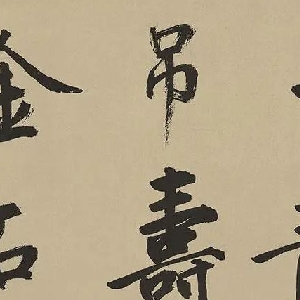 吊壽
金石